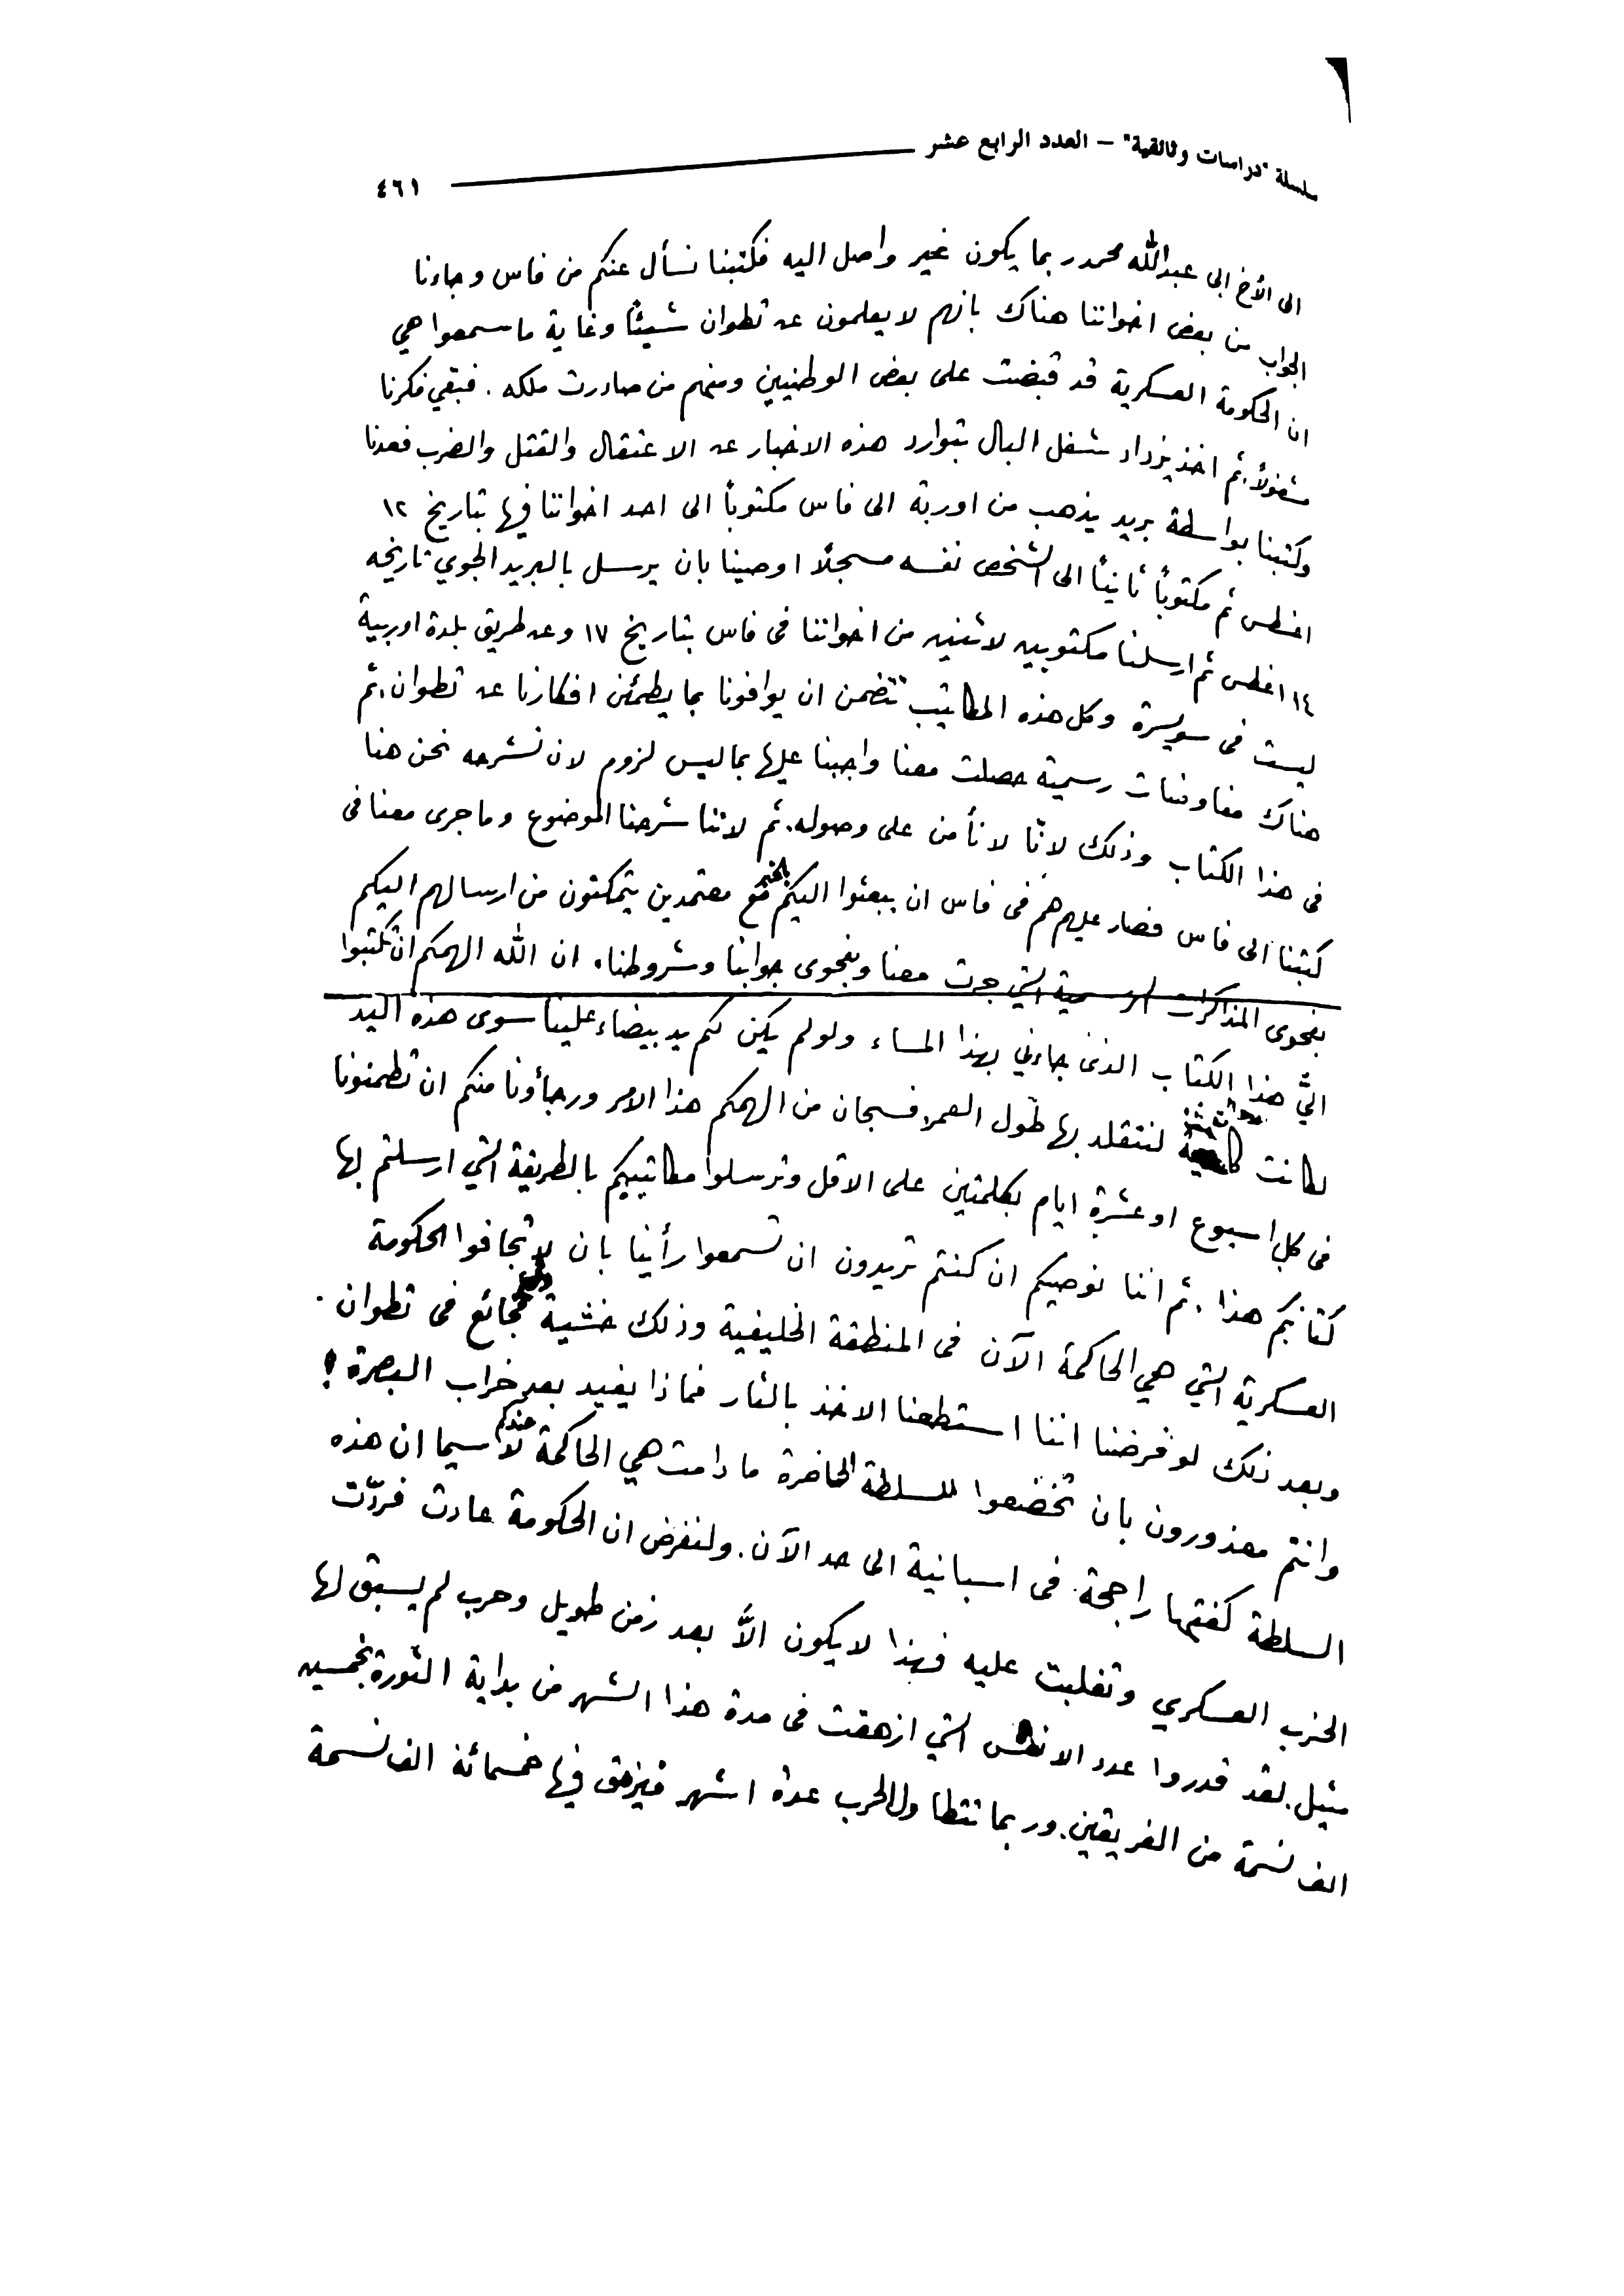 سلسلة "دراسات وثائقية" – العدد الرابع عشر ٤٦١
الى الأخ ابى عبدالله محمد ربما يكون غير واصل اليه فكتبنا نسأل عنكم من فاس وجاءنا
الجواب من بعض اخواتنا هناك بانهم لا يعلمون عن تطوان شيئاً وغاية ما سمعوا هي
ان الحكومة العسكرية قد قبضت على بعض الوطنيين ومنهم من صادرت ملكه . فبقي فكرنا
مشغولاً. ثم اخذ يزداد شغل البال بتوارد هذه الاخبار عن الاعتقال والقتل والضرب فعدنا
وكتبنا بواسطة بريد يذهب من اوربة الى فاس مكتوباً الى احد اخواتنا فيها بتاريخ ١٢
اغطس ثم مكتوباً ثانياً الى الشخص نفسه مسجلاً اوصينا بان يرسل بالبريد الجوي تاريخه
١٤ اغطس ثم ارسلنا مكتوبين لاثنين من اخواتنا فى فاس بتاريخ ١٧ وعن طريق بلدة اوربية
ليست فى سويسرة وكل هذه المكاتيب تتضمن ان يوافونا بما يطمئن افكارنا عن تطوان. ثم
هناك مفاوضات رسمية حصلت معنا واجبنا عليها بما ليس لزوم لان نشرحه نحن هنا
فى هذا الكتاب وذلك لانّا لا نأمن على وصوله. ثم لاننا شرحنا الموضوع وما جرى معنا فى
كتبنا الى فاس فصار عليهم هم فى فاس ان يبعثوا اليكم الخبر مع معتمدين يتمكنون من ارسالهم اليكم
بفحوى المذاكرات الرسمية التي جرت معنا وبفحوى جوابنا وشروطنا. ان الله الهمكم ان تكتبوا
اليَّ هذا الكتاب الذى جاءني بهذا المساء ولو لم يكن لكم يد بيضاء علينا سوى هذه اليد
لكانت لنتقلد بها طول العمر. فسبحان من الهمكم هذا الامر ورجاؤنا منكم ان تطمنونا
فى كل اسبوع او عشرة ايام بكلمتين على الاقل وترسلوا مكاتيبكم بالطريقة التي ارسلتم بها
كتابكم هذا . ثم اننا نوصيكم ان كنتم تريدون ان تسمعوا رأينا بان لا تجافوا الحكومة
العسكرية التي هي الحاكمة الآن فى المنطقة الخليفية وذلك خشية فجائع فى تطوان .
وبعد ذلك لو فرضنا اننا استطعنا الاخذ بالثار فماذا يفيد بعد خراب البصرة !
وانتم معذورون بان تخضعوا للسلطة الحاضرة ما دامت هي الحاكمة عندكم لا سيما ان هذه
السلطة كفتها راجحة فى اسبانية الى حد الآن. ولنفرض ان الحكومة عادت فردّت
الحزب العسكري وتغلبت عليه فهذا لا يكون الاَّ بعد زمن طويل وحرب لم يسبق لها
مثيل. لقد قدروا عدد الانفس التي ازهقت فى مدة هذا الشهر من بداية الثورة بخمسين
الف نسمة من الفريقين. وربما تتطاول الحرب عدة اشهر فيزهق فيها خمسمائة الف نسمة